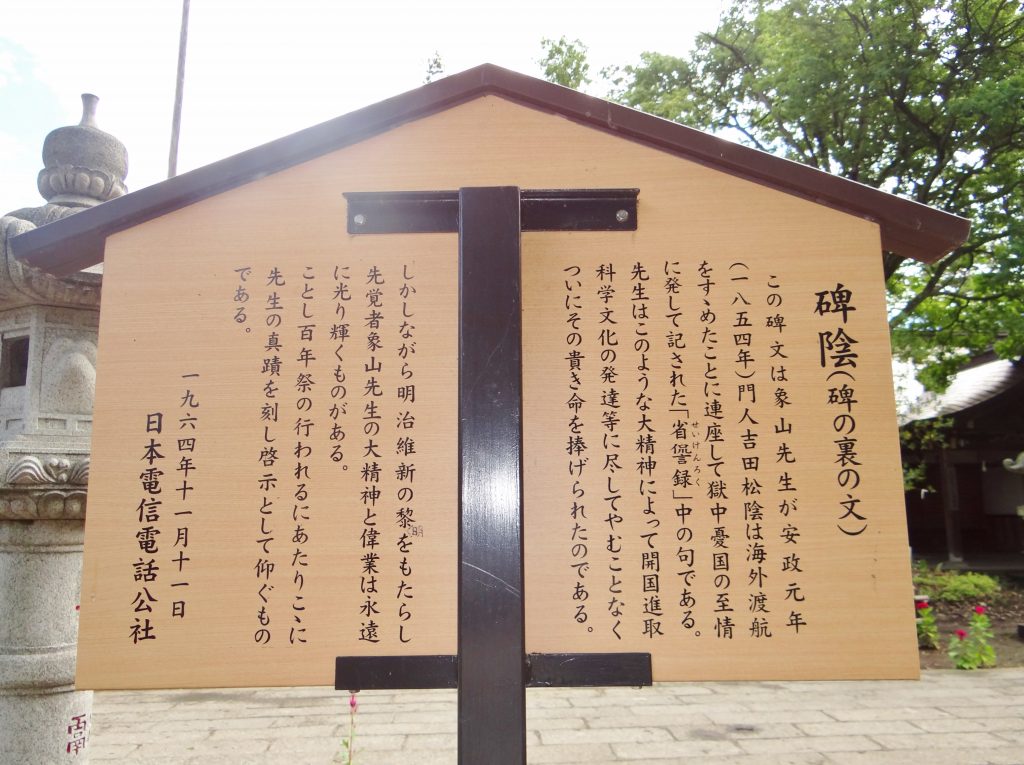 碑陰（碑の裏の文）
この碑文は象山先生が安政元年
（一八五四年）門人吉田松陰は海外渡航
をすゝめたことに連座して獄中憂国の至情
に発して記された「省諐録」中の句である。
せいけんろく
先生はこのような大精神によって開国進取
科学文化の発達等に尽してやむことなく
ついにその貴き命を捧げられたのである。
しかしながら明治維新の黎をもたらし
明
先覚者象山先生の大精神と偉業は永遠
に光り輝くものがある。
ことし百年祭の行われるにあたりこゝに
先生の真蹟を刻し啓示として仰ぐもの
である。
一九六四年十一月十一日
日本電信電話公社